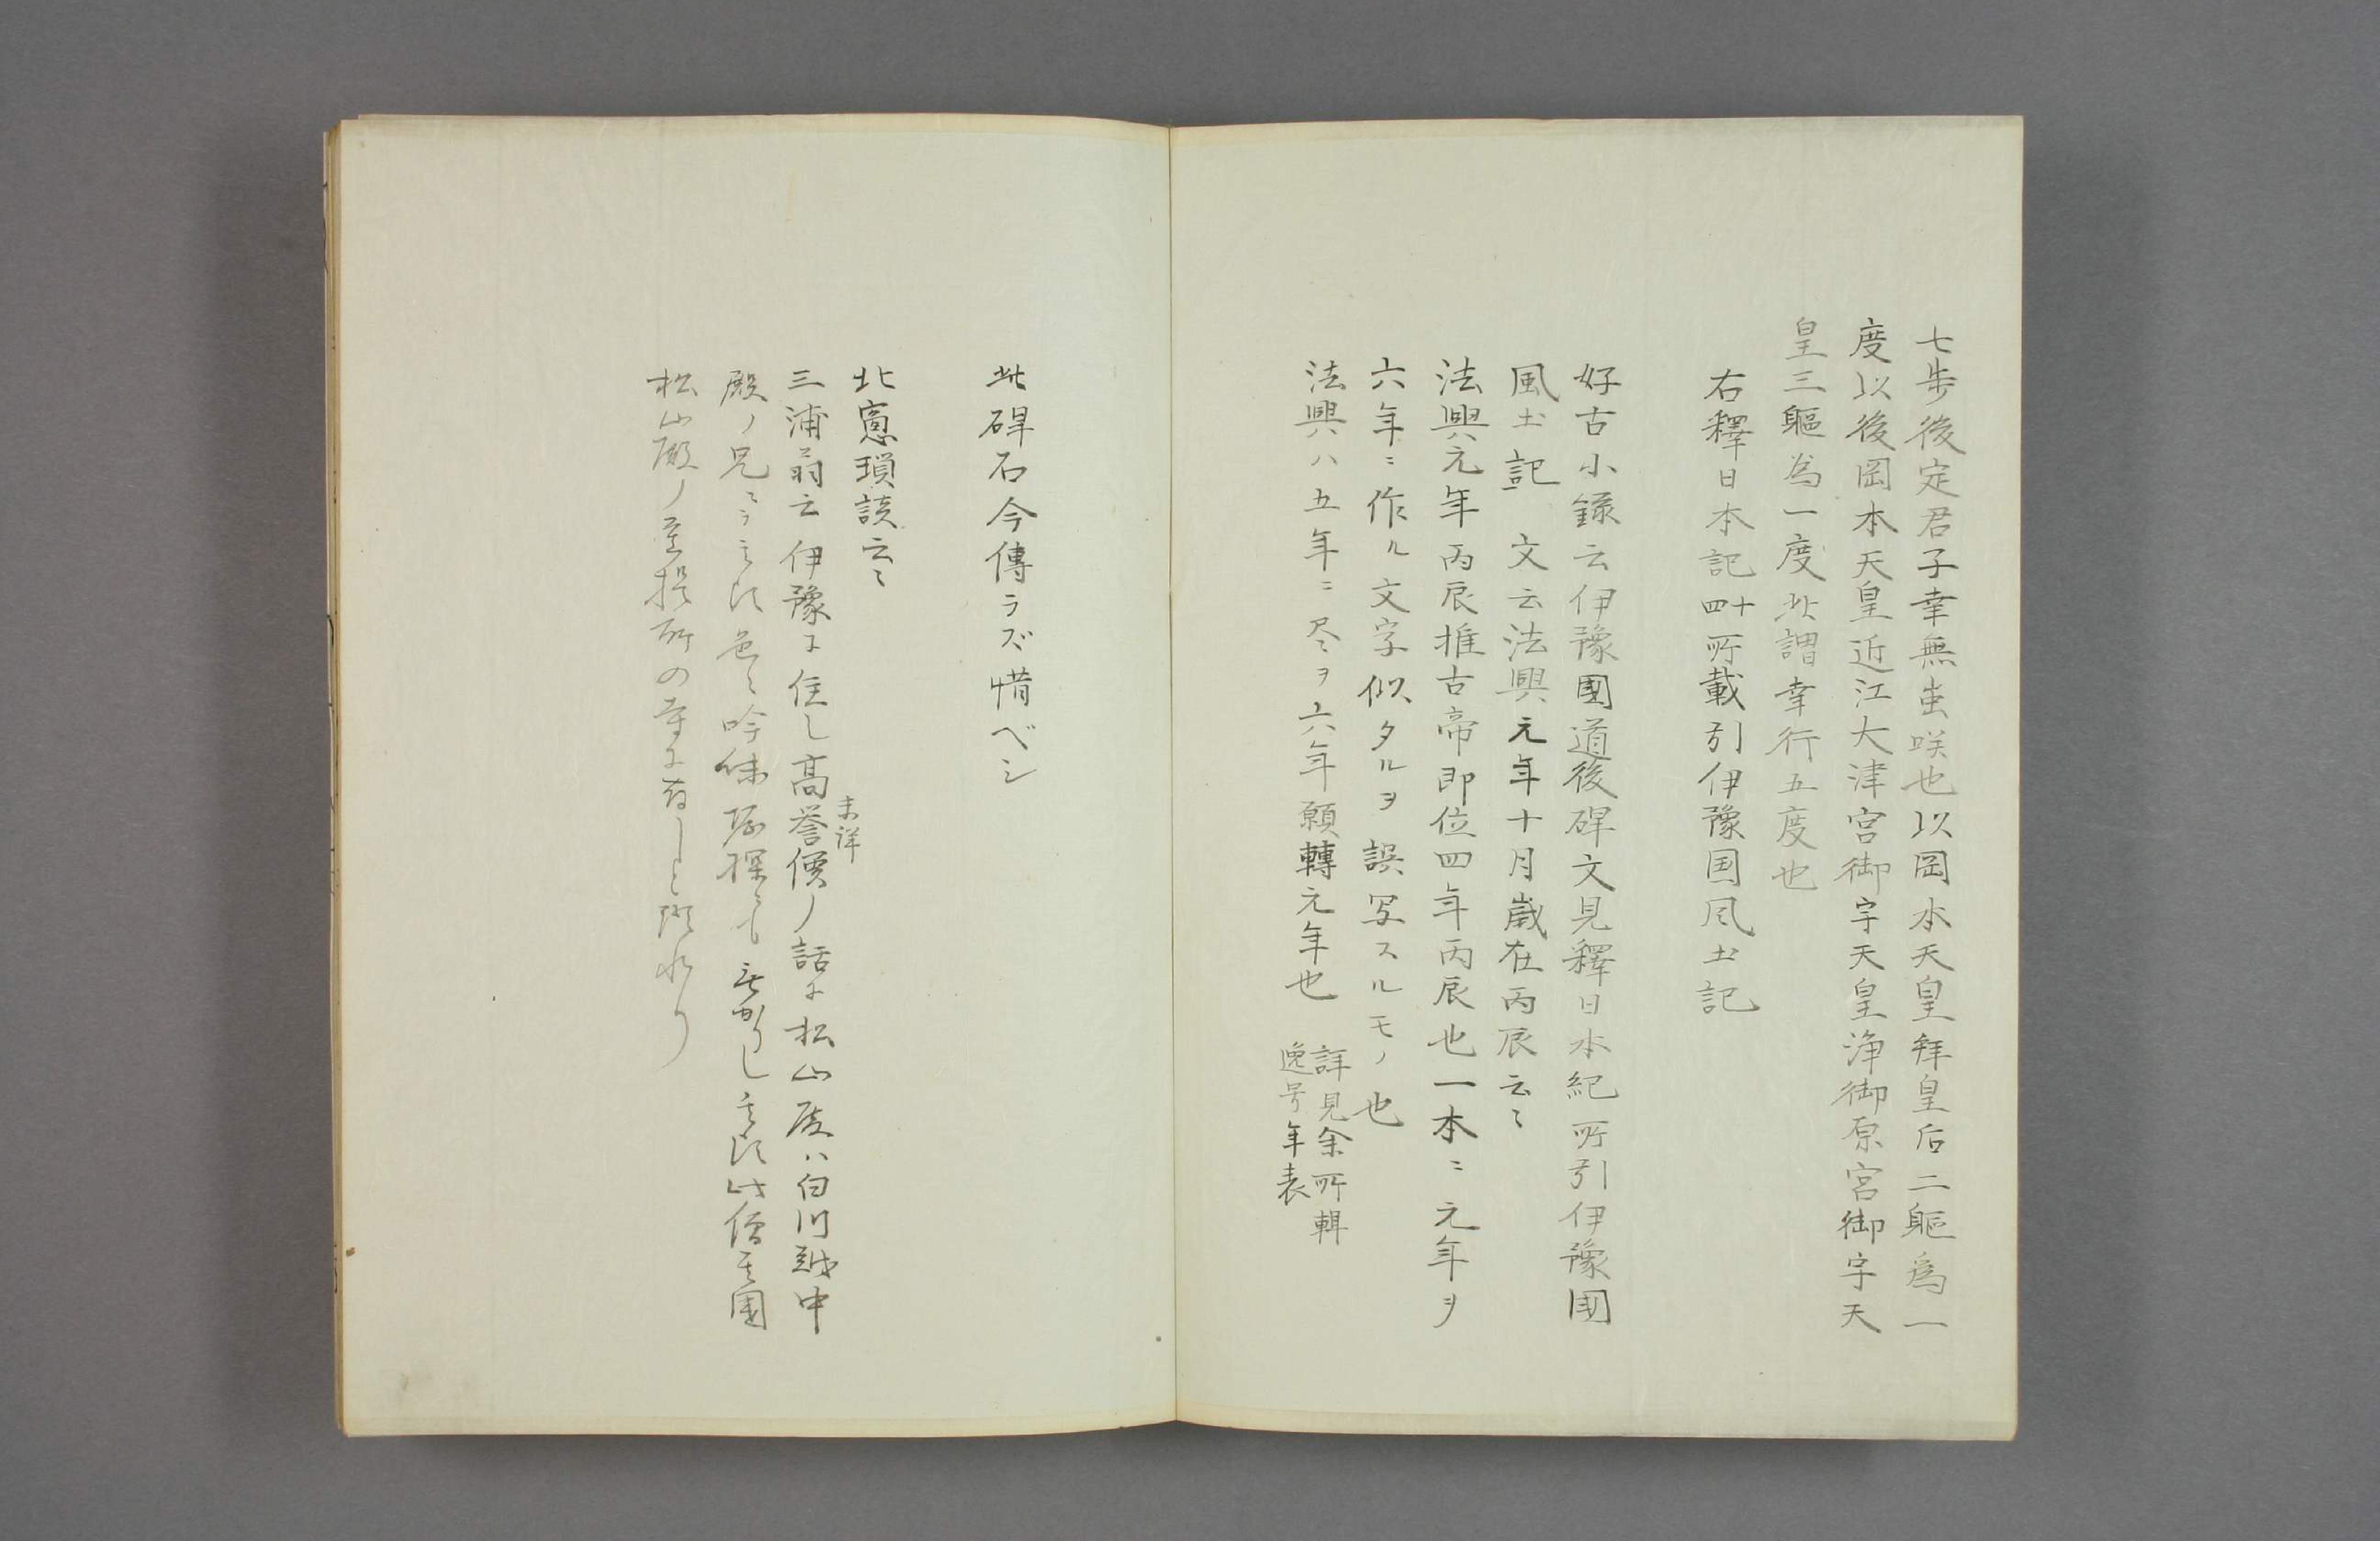 七歩後定君子幸無蚩咲也以岡本天皇拜皇后二軀爲一
度以後岡本天皇近江大津宮御宇天皇浄御原宮御宇天
皇三軀為一度此謂幸行五度也
右釋日本記十四所載引伊豫国风土記
好古小録云伊豫國道後碑文見釋日本紀所引伊豫國
風土記 文云法興元年十月歳在丙辰云〻
法興元年丙辰推古帝即位四年丙辰也一本ニ元年ヲ
六年ニ作ル文字似タルヲ誤写スルモノ也
法興ハ五年ニ尽ヲ六年願轉元年也 詳見余所輯
逸号年表
此碑石今傳ラズ惜ベシ
北窓瑣談云〻
三浦翁云伊豫に住し高誉僧ノ話に松山侯ハ白川越中
未詳
殿ノ兄にて其頃色〻吟味功探ても無かりし其頃此僧其国
松山殿ノ菩提所の寺に有しと语れり